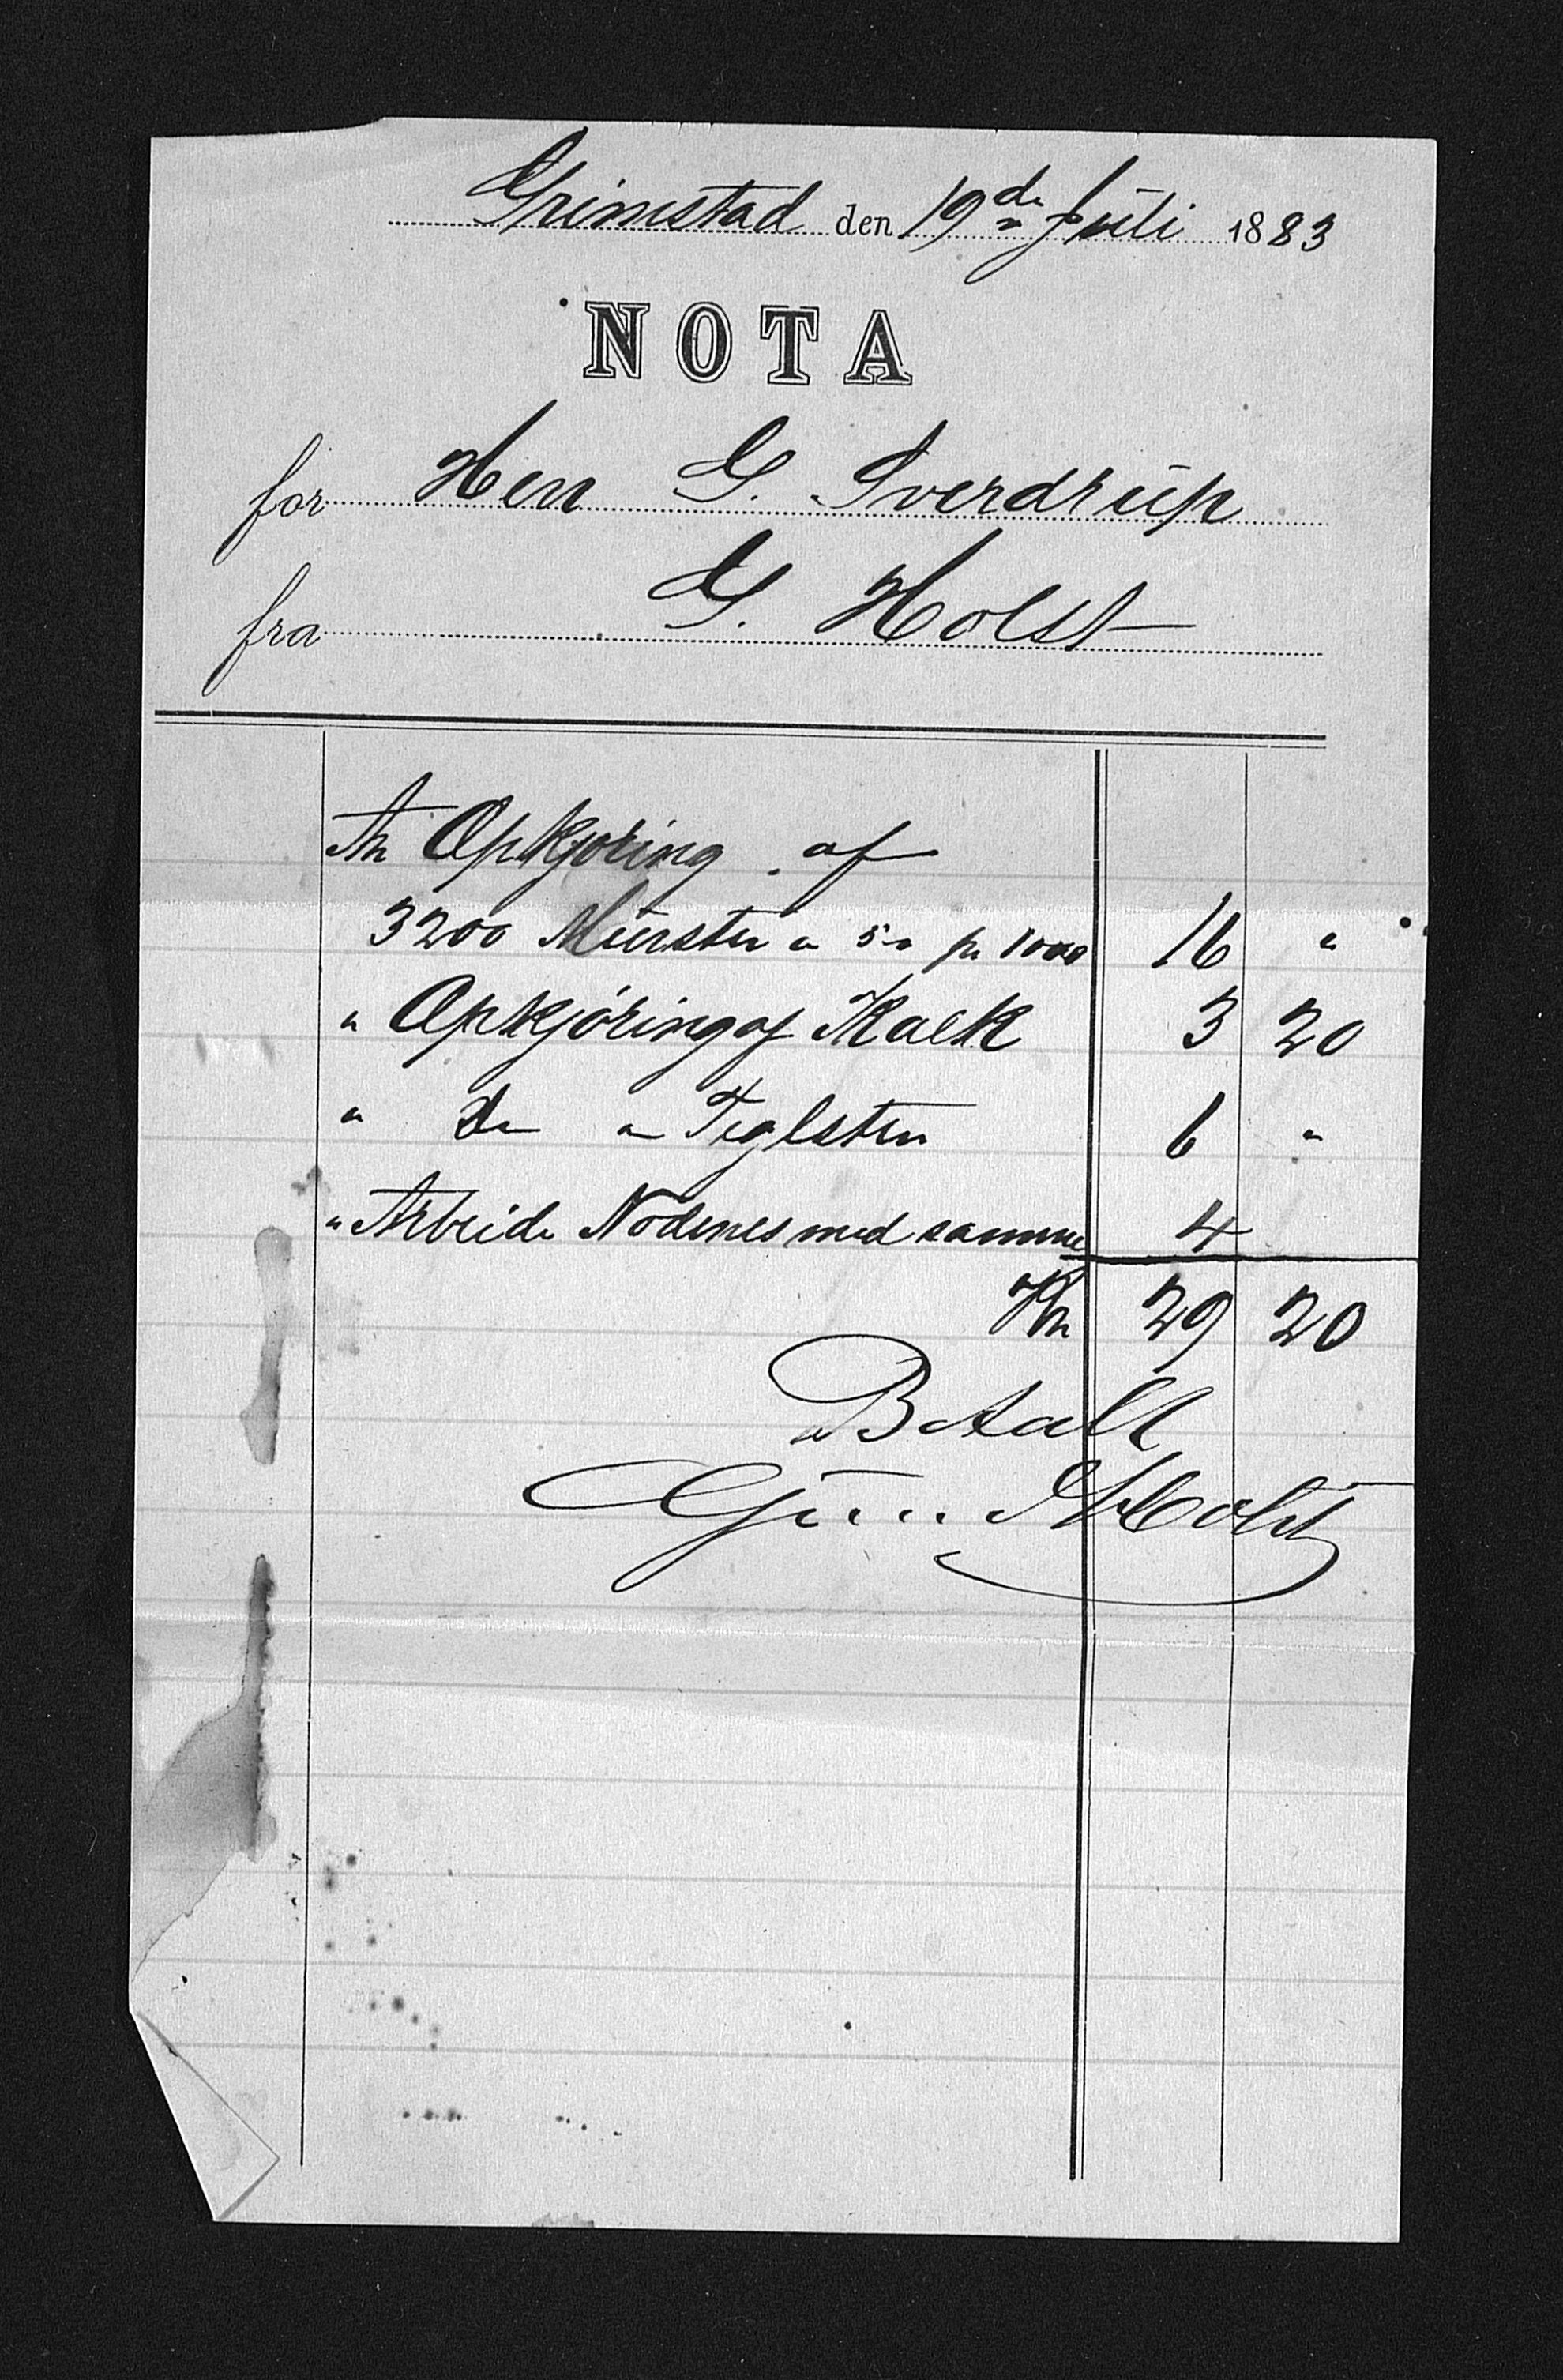 Grimstad den 19de Juli 1883
NOTA
for Herr G. Sverdrup
fra G. Holst
An Opkjøring af
3200 Mursten a 5 " pr 1000 16 "
" Opkjøring af Kalk 3 20
" Do " Teglsten 6 "
" Arbeide Nodenes med samme 4
Kr 29 20
Betalt
Gun Holst